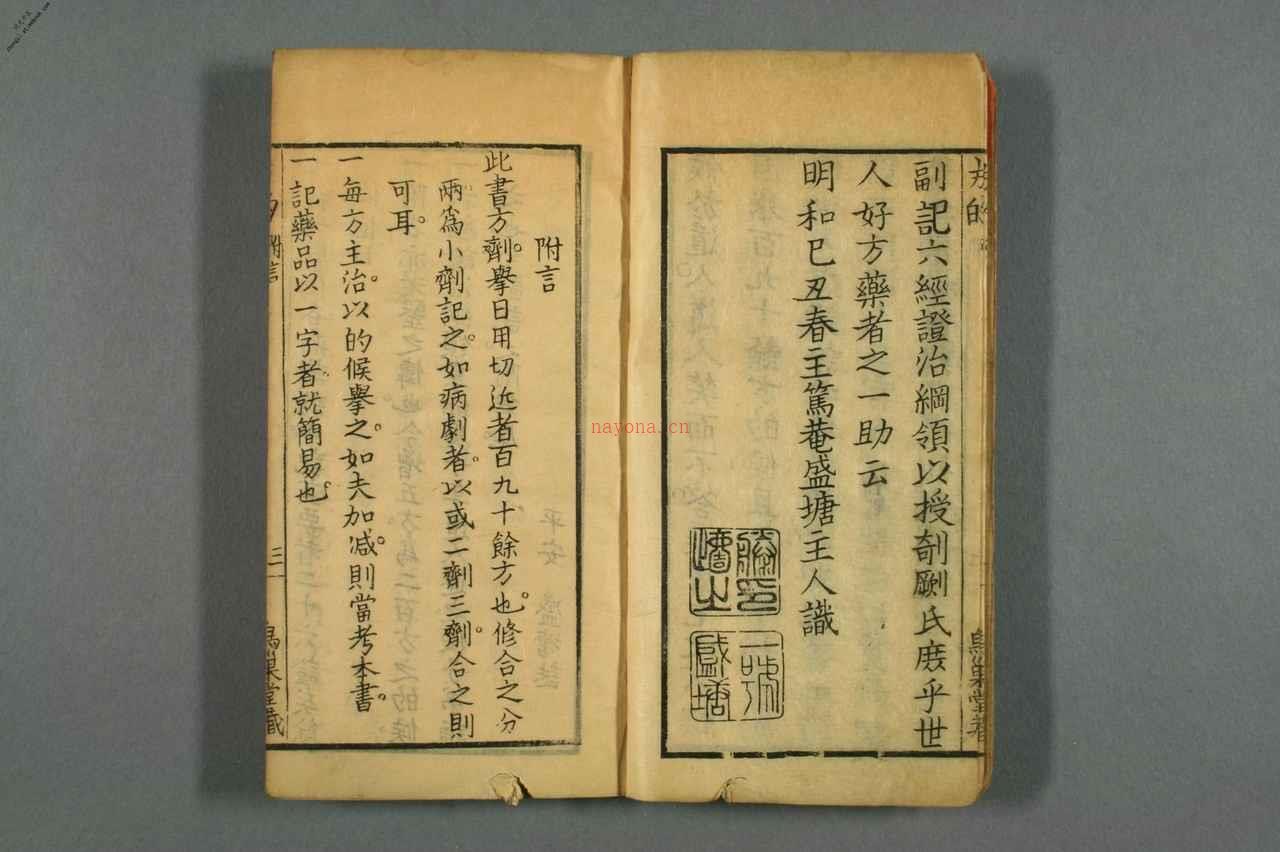 副記六經證治綱領以授剞劂氏庶乎世
人好方藥者之一助云
明和己丑春主篤菴盛塘主人識
一號
盛塘
附言
此書方劑。舉日用切近者百九十餘方也。修合之分
兩爲小劑記之。如病劇者。以或二劑三劑。合之則
可耳。
一每方主治。以的候舉之。如夫加減。則當考本書。
一記藥品以一字者。就簡易也。
附言
三
nayona.cn